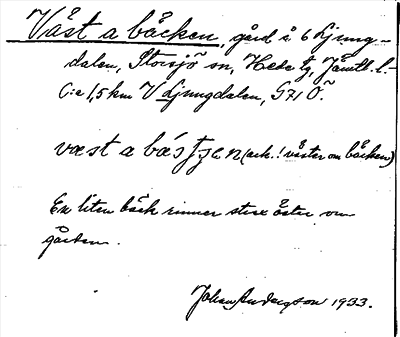 Väst a bäcken, gård i 6 Ljung-
dalen, Storsjö sn, Hede tg, Jämtl. l.-
C:a 1,5 km V Ljungdalen, G71 Ö.
væst a bäsʃʃen (ack.! väster om bäcken)
En liten bäck rinner strax öster om
gården.
Johan Andersson 1933.